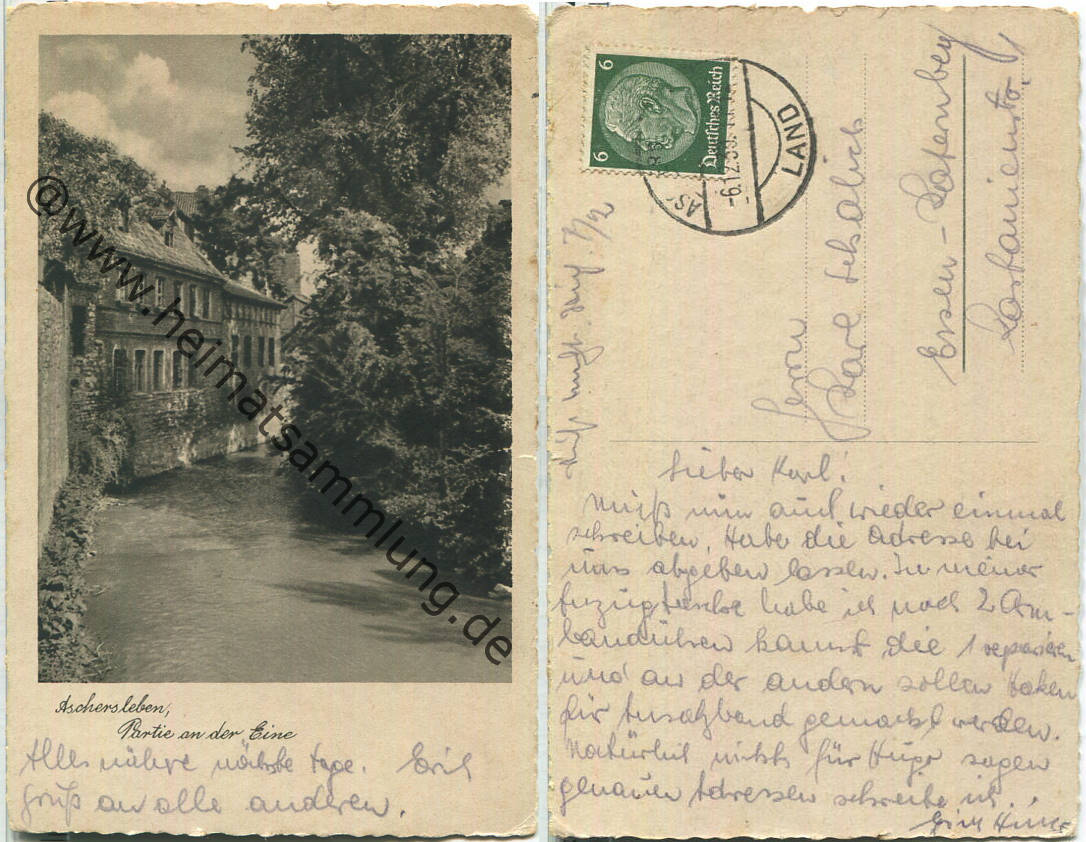 @www.heimatsammlung.de
Aschersleben,
Partie an der Eine
Alles nähre nächste Tage. Erich
Gruß an alle anderen.
6 6
Deutsches Reich
LAND
-6.12.
Herrn
Essen-Katernberg
Kastanienstr.
Lieber Karl!
Muß nun auch wieder einmal
schreiben. Habe die Adresse bei
uns abgeben lassen. In meiner
Anzugtasche habe ich noch 2 Arm-
banduhren kannst die 1 reparieren
und an der andern sollen Haken
für Ansatzband gemacht werden.
Natürlich nichts für Hugo sagen
genauen Adressen schreibe ich..